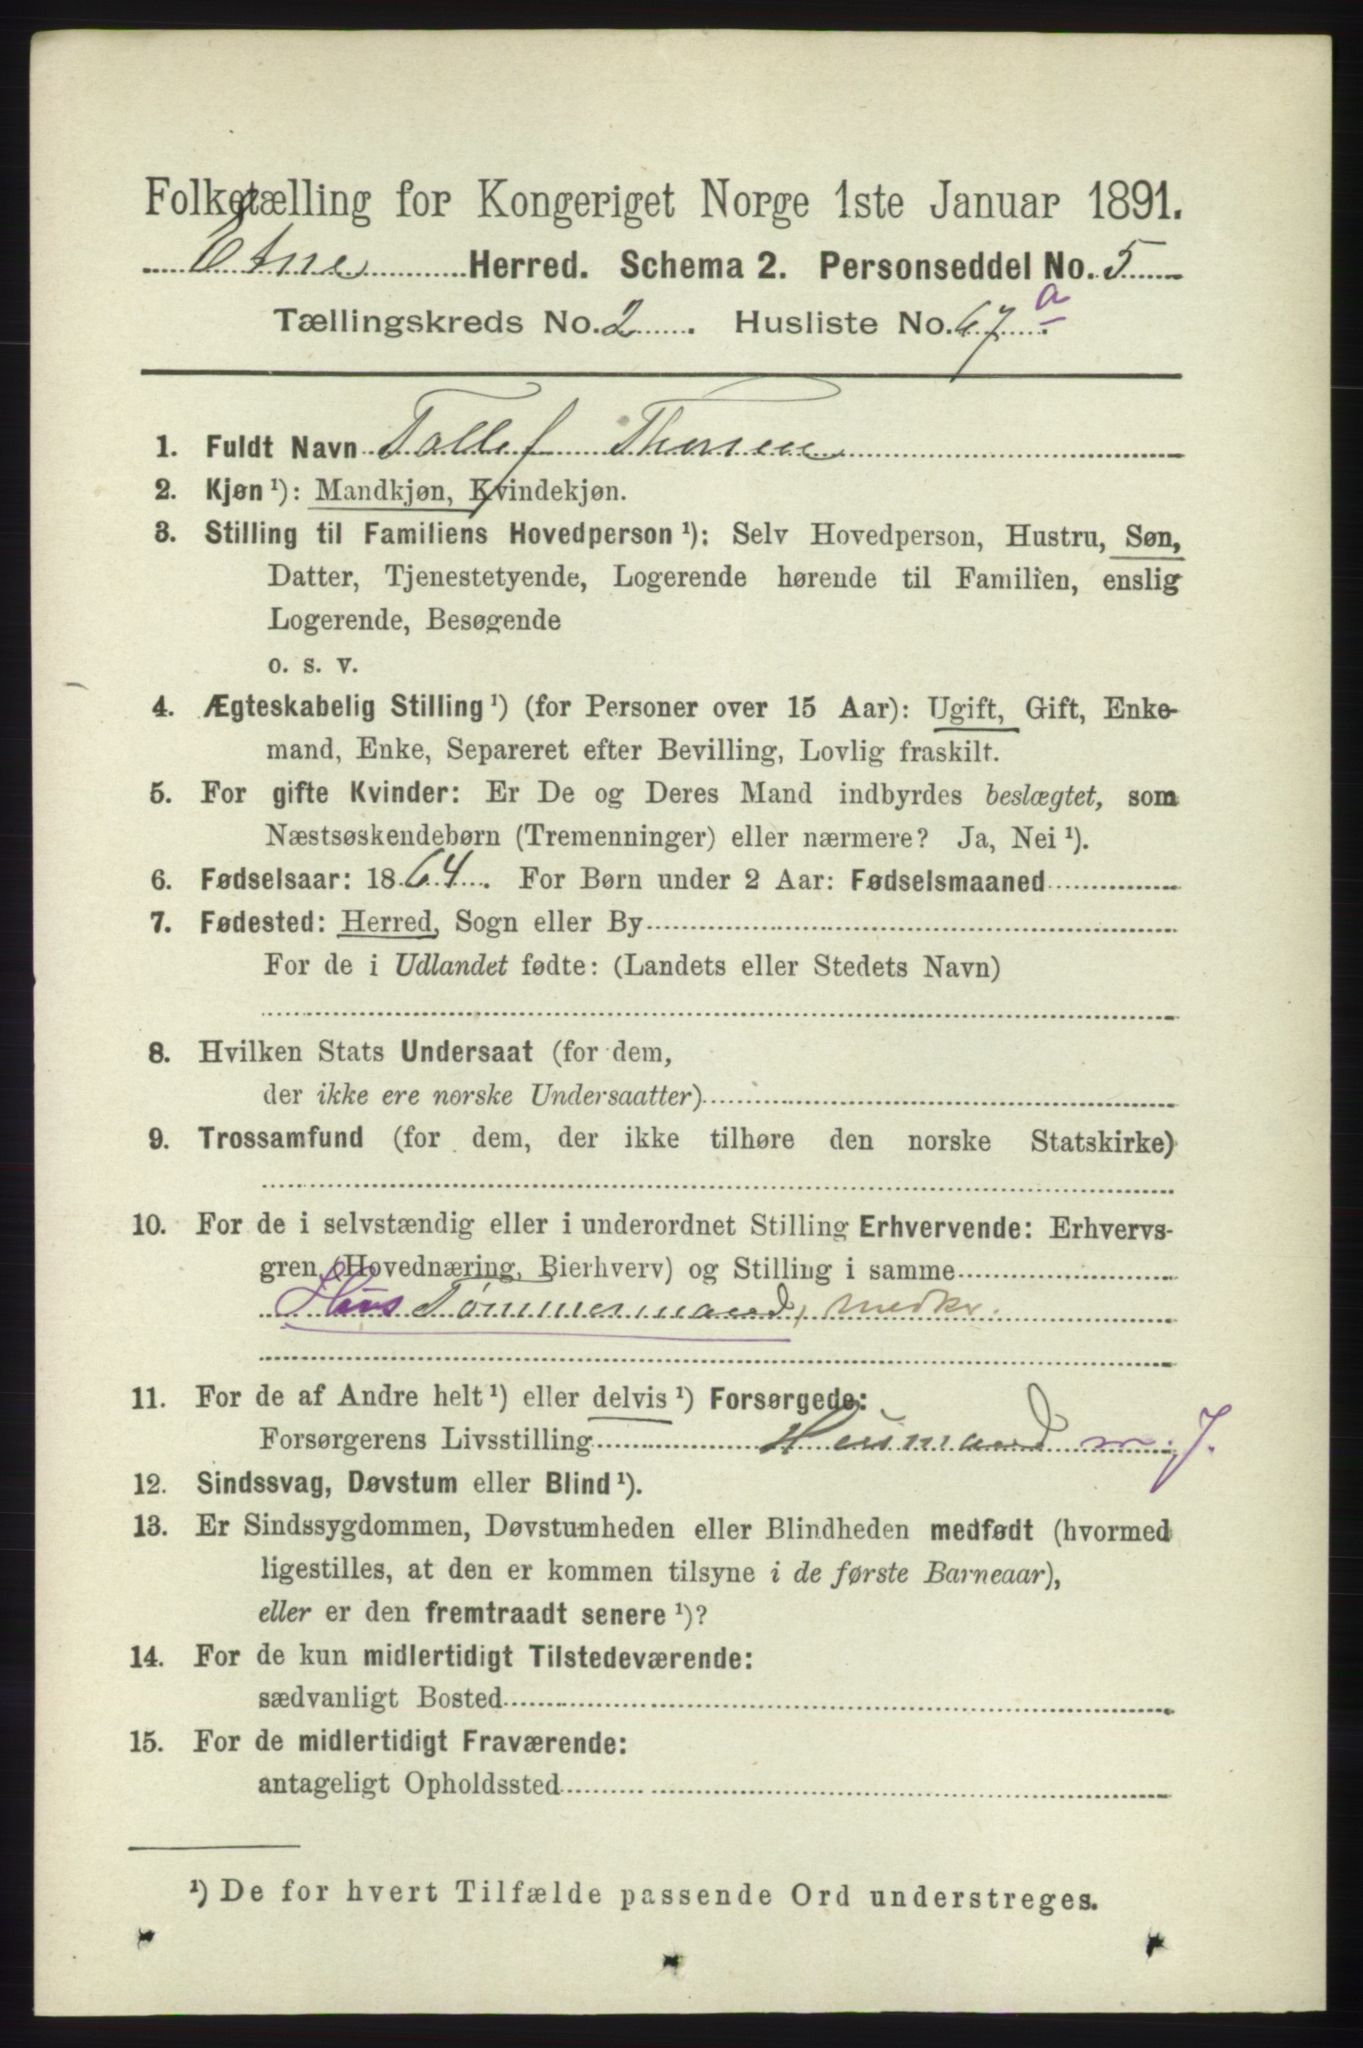 Folketælling for Kongeriget Norge 1ste Januar 1891.
Etne Herred. Schema 2. Personseddel No. 5
Tællingskreds No. 2. Husliste No. 67 a
1. Fuldt Navn Tollef Thorsen
2. Kjøn ¹): Mandkjøn, Kvindekjøn.
3. Stilling til Familiens Hovedperson ¹): Selv Hovedperson, Hustru, Søn,
Datter, Tjenestetyende, Logerende hørende til Familien, enslig
Logerende, Besøgende
o. s. v.
4. Ægteskabelig Stilling ¹) (for Personer over 15 Aar): Ugift, Gift, Enke-
mand, Enke, Separeret efter Bevilling, Lovlig fraskilt.
5. For gifte Kvinder: Er De og Deres Mand indbyrdes beslægtet, som
Næstsøskendebørn (Tremenninger) eller nærmere? Ja, Nei ¹).
6. Fødselsaar: 1864. For Børn under 2 Aar: Fødselsmaaned
7. Fødested: Herred, Sogn eller By
For de i Udlandet fødte: (Landets eller Stedets Navn)
8. Hvilken Stats Undersaat (for dem,
der ikke ere norske Undersaatter)
9. Trossamfund (for dem, der ikke tilhøre den norske Statskirke)
10. For de i selvstændig eller i underordnet Stilling Erhvervende: Erhvervs-
gren (Hovednæring, Bierhverv) og Stilling i samme
Hus Tømmermand, medkr.
11. For de af Andre helt ¹) eller delvis ¹) Forsørgede:
Forsørgerens Livsstilling Husmand m. J.
12. Sindssvag, Døvstum eller Blind ¹).
13. Er Sindssygdommen, Døvstumheden eller Blindheden medfødt (hvormed
ligestilles, at den er kommen tilsyne i de første Barneaar),
eller er den fremtraadt senere ¹)?
14. For de kun midlertidigt Tilstedeværende:
sædvanligt Bosted
15. For de midlertidigt Fraværende:
antageligt Opholdssted
¹) De for hvert Tilfælde passende Ord understreges.